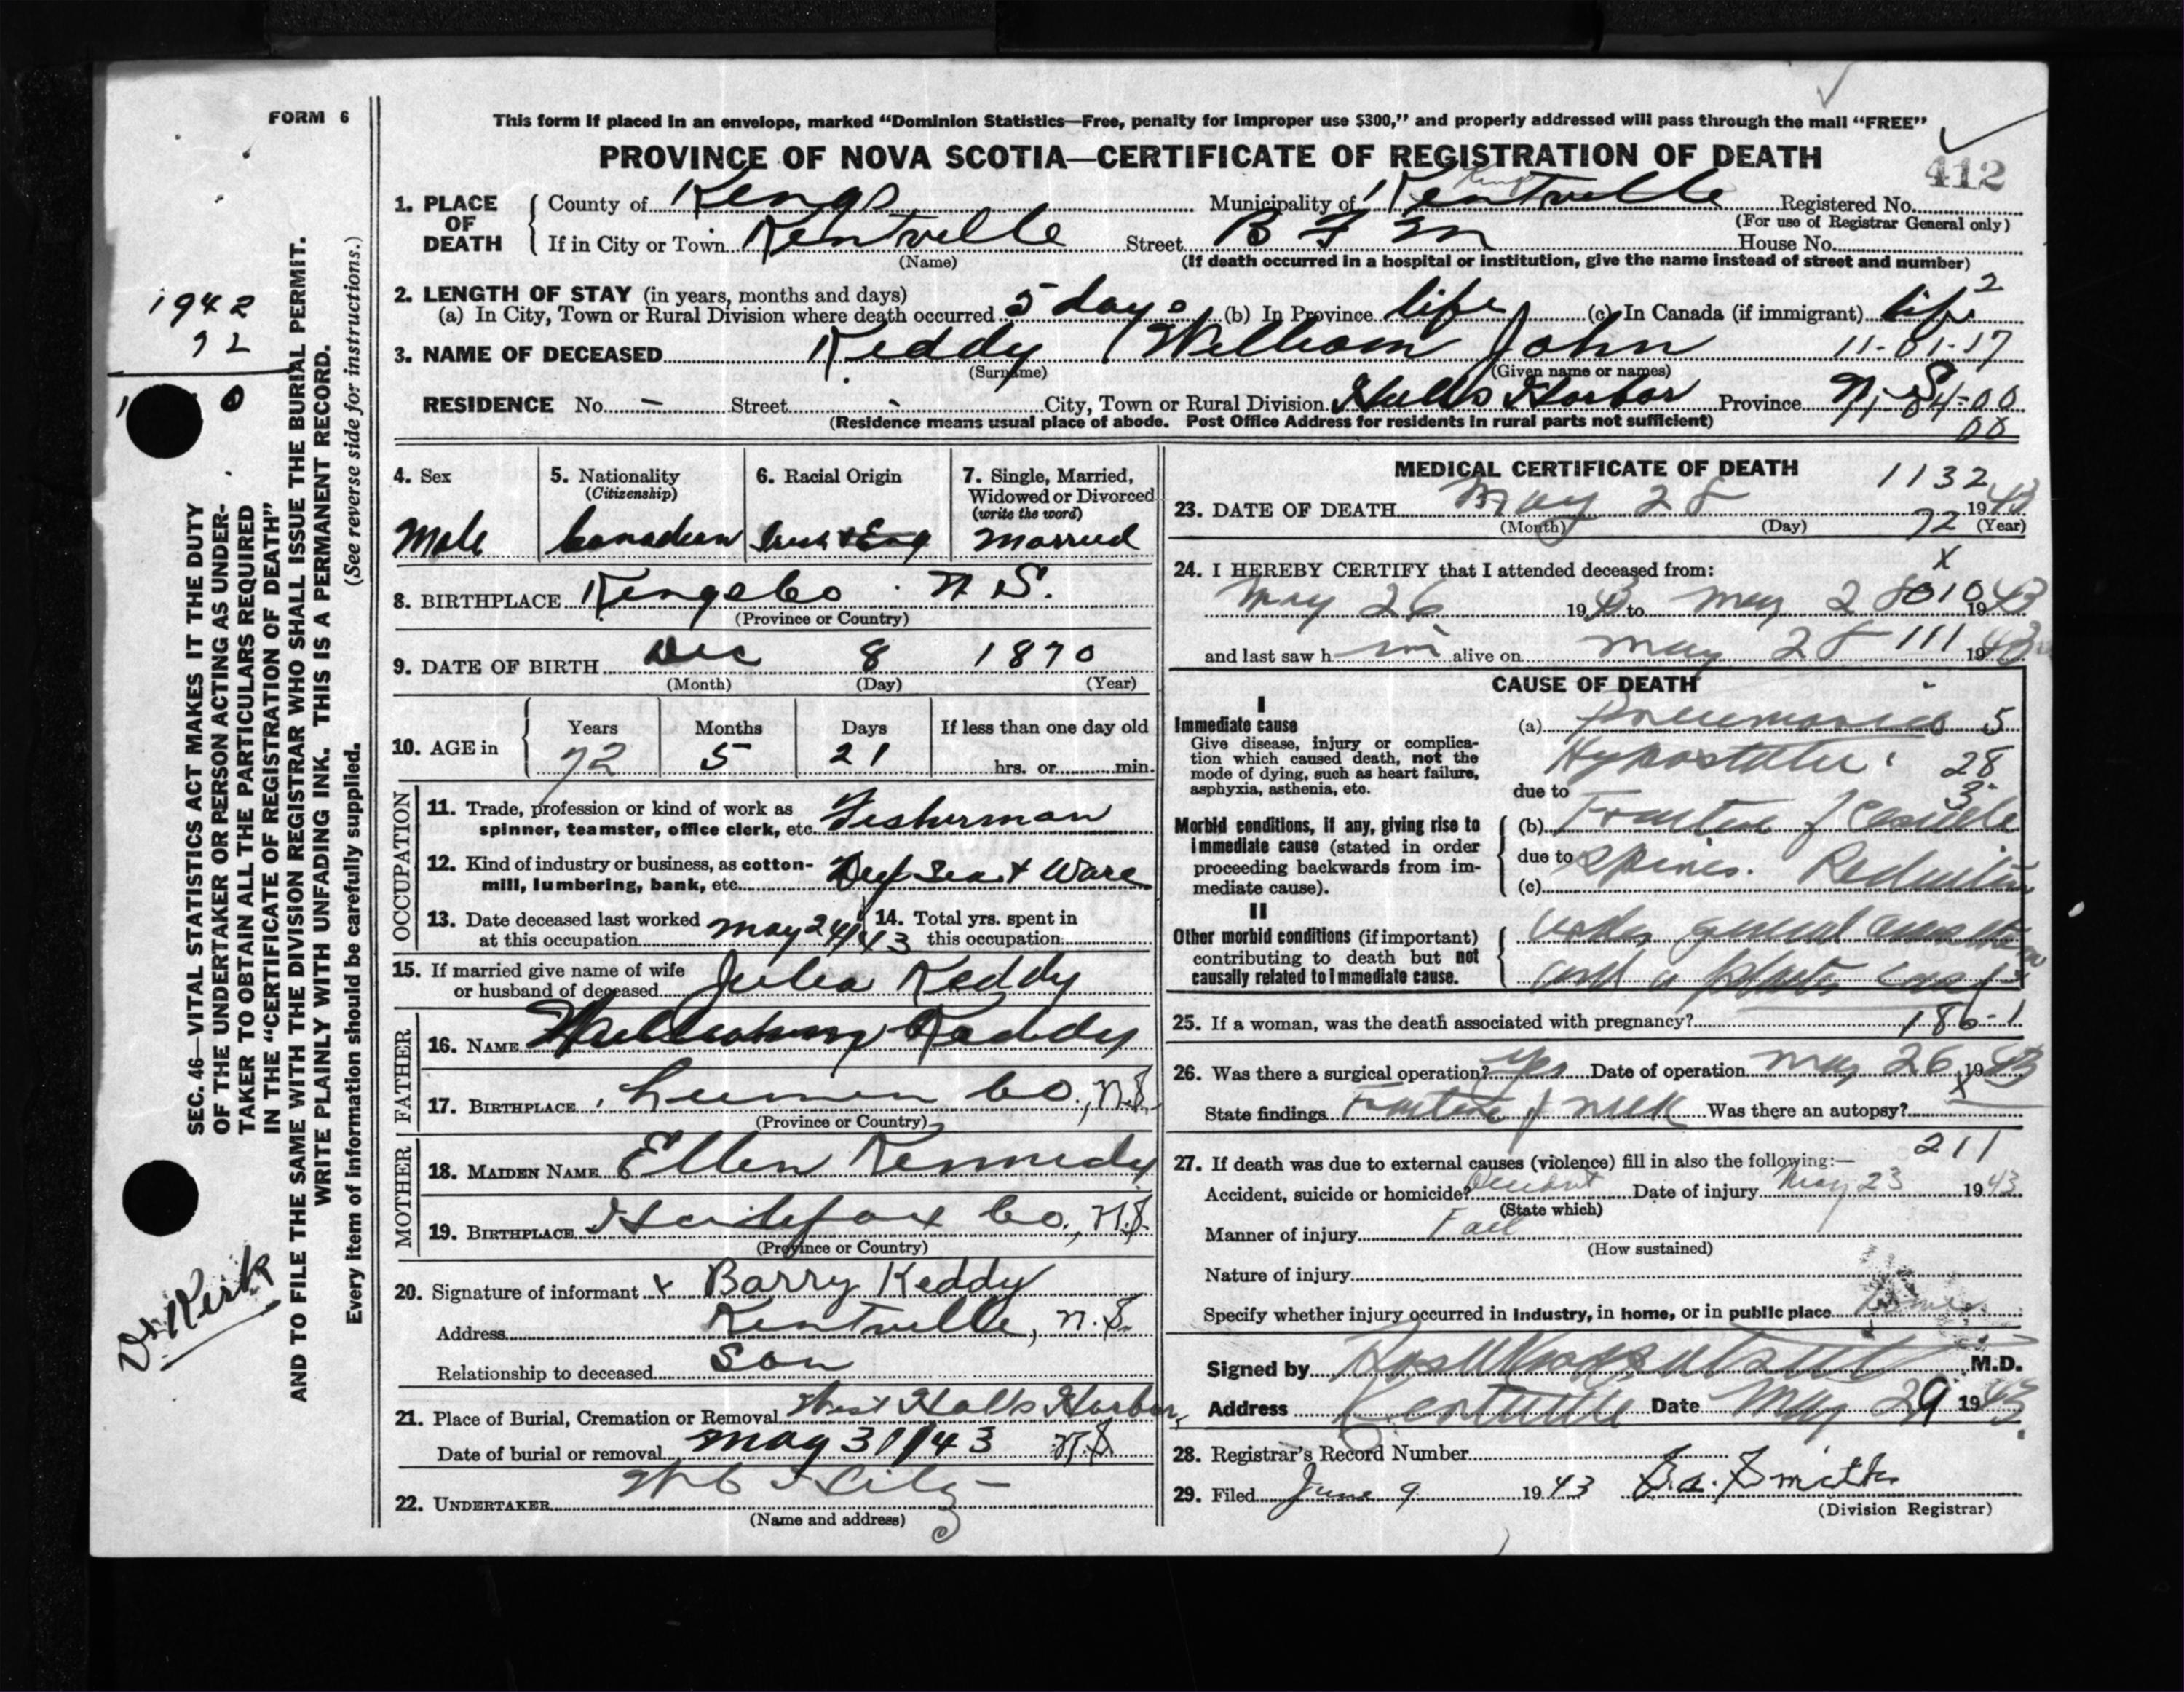 FORM 6
This form if placed in an envelope, marked “Dominion Statistics—Free, penalty for improper use $300,” and properly addressed will pass through the mail “FREE”
PROVINCE OF NOVA SCOTIA—CERTIFICATE OF REGISTRATION OF DEATH
412
1. PLACE OF DEATH
County of Kings Municipality of Kentville Registered No.
(For use of Registrar General only)
If in City or Town Kentville Street B F M House No.
(Name) (If death occurred in a hospital or institution, give the name instead of street and number)
2. LENGTH OF STAY (in years, months and days)
(a) In City, Town or Rural Division where death occurred 5 days (b) In Province life (c) In Canada (if immigrant) life 2
3. NAME OF DECEASED Keddy William John 11-01-17
(Surname) (Given name or names)
RESIDENCE No. — Street - City, Town or Rural Division Halls Harbor Province N.S.
(Residence means usual place of abode. Post Office Address for residents in rural parts not sufficient)
4. Sex
Male
5. Nationality
(Citizenship)
Canadian
6. Racial Origin
Irish & Eng
7. Single, Married,
Widowed or Divorced
(write the word)
Married
8. BIRTHPLACE Kings Co N S.
(Province or Country)
9. DATE OF BIRTH Dec 8 1870
(Month) (Day) (Year)
10. AGE in
Years Months Days If less than one day old
72 5 21 hrs. or min.
OCCUPATION
11. Trade, profession or kind of work as
spinner, teamster, office clerk, etc. Fisherman
12. Kind of industry or business, as cotton-
mill, lumbering, bank, etc. Deep Sea &
13. Date deceased last worked
at this occupation May 24/43
14. Total yrs. spent in
this occupation
15. If married give name of wife
or husband of deceased Julia Keddy
FATHER
16. NAME Keddy
17. BIRTHPLACE Co., N.S.
(Province or Country)
MOTHER
18. MAIDEN NAME Ellen Kennedy
19. BIRTHPLACE Halifax Co., N.S.
(Province or Country)
20. Signature of informant x Barry Keddy
Address Kentville, N.S.
Relationship to deceased Son
21. Place of Burial, Cremation or Removal West Halls Harbor,
Date of burial or removal May 31/43 N.S
22. UNDERTAKER
(Name and address)
MEDICAL CERTIFICATE OF DEATH
1132
23. DATE OF DEATH May 28 1943
(Month) (Day) (Year)
72
24. I HEREBY CERTIFY that I attended deceased from:
x
May 26 1943 to May 28 1943
010
and last saw h im alive on May 28 1943
111
CAUSE OF DEATH
I
Immediate cause
Give disease, injury or complica-
tion which caused death, not the
mode of dying, such as heart failure,
asphyxia, asthenia, etc.
(a) Pneumonia 5
Hypostatic 28
3
due to
Morbid conditions, if any, giving rise to
immediate cause (stated in order
proceeding backwards from im-
mediate cause).
(b) Fracture of
due to Spines. Reduction
(c)
II
Other morbid conditions (if important)
contributing to death but not
causally related to immediate cause.
under general
and a plaster cast
25. If a woman, was the death associated with pregnancy? 186-1
26. Was there a surgical operation? Yes Date of operation May 26 1943
State findings Fracture of neck Was there an autopsy? x
211
27. If death was due to external causes (violence) fill in also the following:—
Accident, suicide or homicide? Accident Date of injury May 23 1943
(State which)
Manner of injury Fall
(How sustained)
Nature of injury
Specify whether injury occurred in Industry, in home, or in public place Home
Signed by M.D.
Address Kentville Date May 29 1943
28. Registrar’s Record Number
29. Filed June 9 1943 Smith
(Division Registrar)
1942
72
SEC. 46—VITAL STATISTICS ACT MAKES IT THE DUTY
OF THE UNDERTAKER OR PERSON ACTING AS UNDER-
TAKER TO OBTAIN ALL THE PARTICULARS REQUIRED
IN THE “CERTIFICATE OF REGISTRATION OF DEATH”
AND TO FILE THE SAME WITH THE DIVISION REGISTRAR WHO SHALL ISSUE THE BURIAL PERMIT.
WRITE PLAINLY WITH UNFADING INK. THIS IS A PERMANENT RECORD.
Every item of information should be carefully supplied. (See reverse side for instructions.)
Dr Kirk